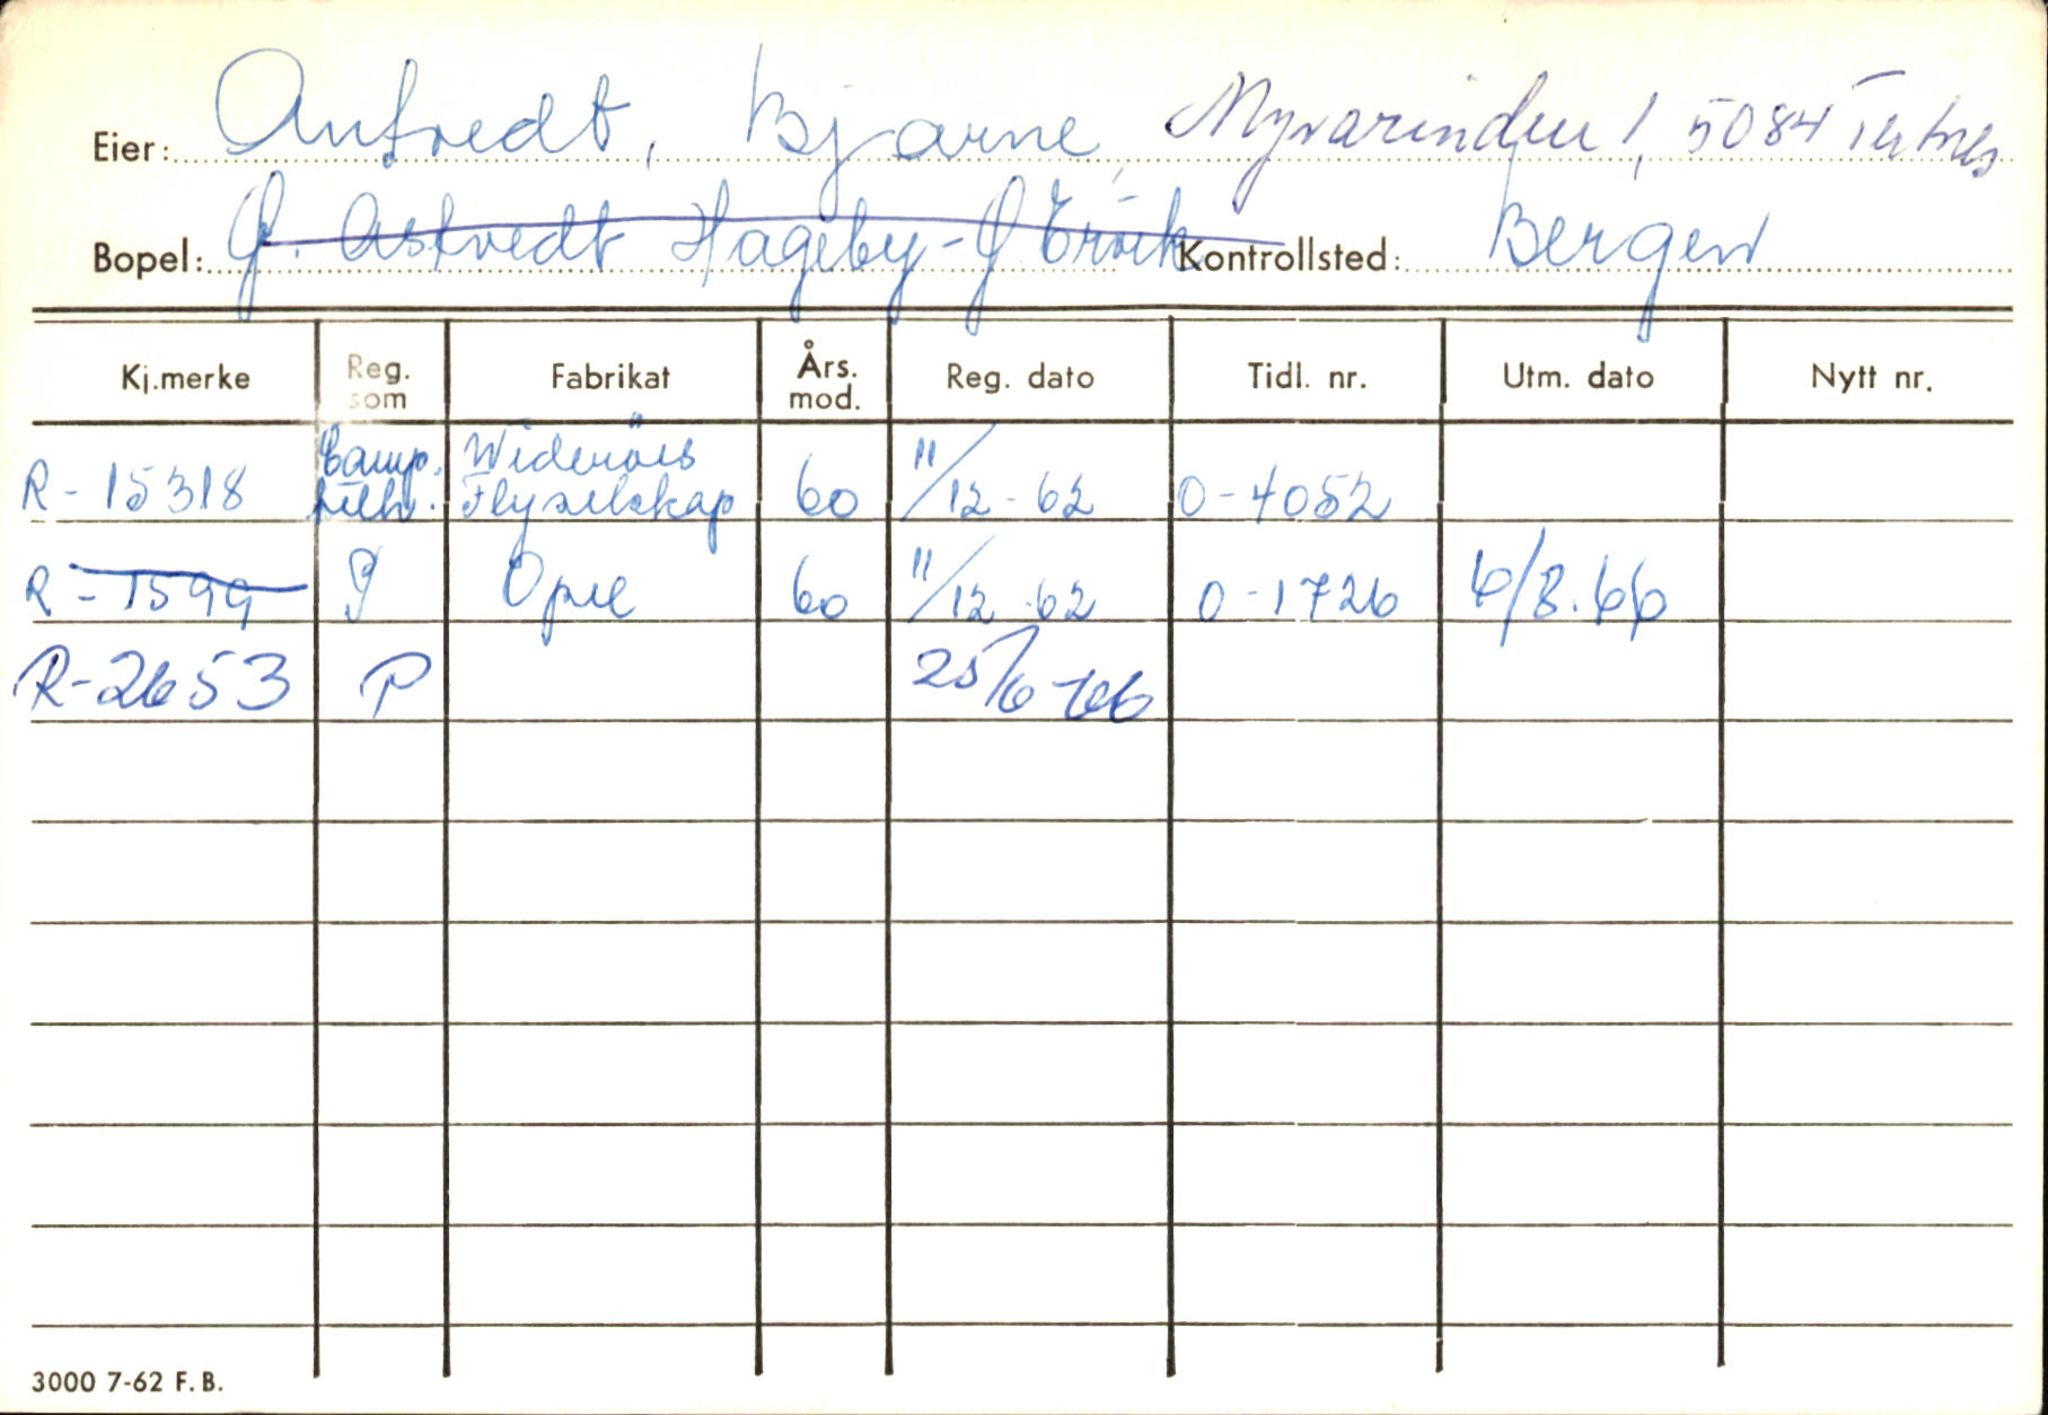 Eier: Anfredt, Bjarne, Myrarinden 1, 5084 Tertnes
Bopel: Hageby- Kontrollsted: Bergen
Kj.merke Reg. som Fabrikat Års. mod. Reg. dato Tidl. nr. Utm. dato Nytt nr.
R-15318 Camp. tilh. Widerøes Flyselskap 60 11/12-62 O-4052
R-1599 P Opel 60 11/12-62 O-1726 6/8.66
R-2653 P 25/6-66
3000 7-62 F.B.